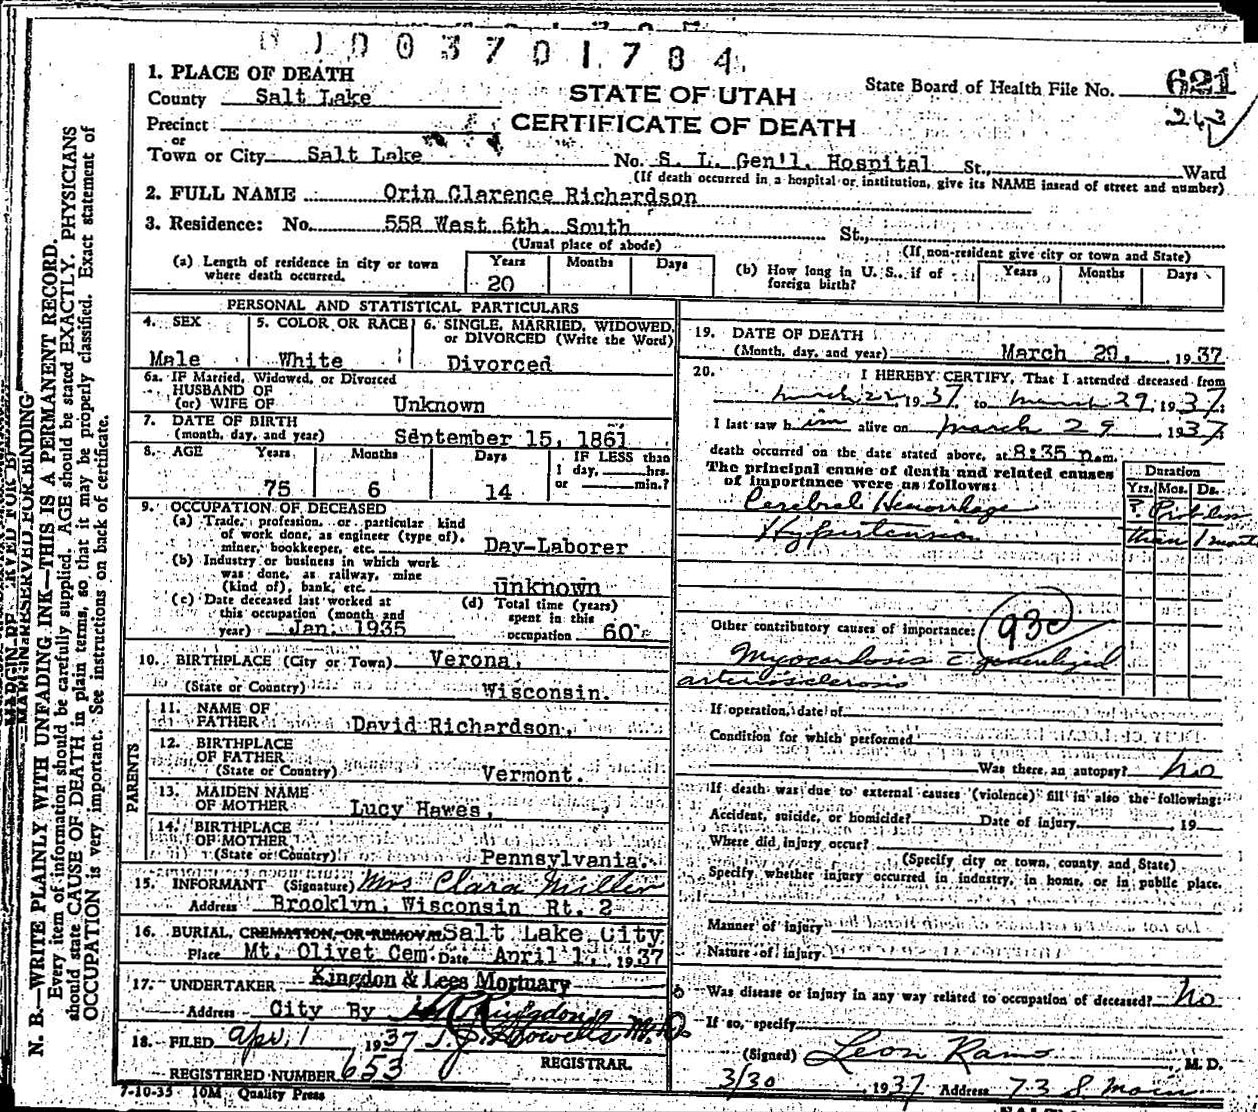 0 1 0 0 3 7 0 1 7 8 4
1. PLACE OF DEATH
County Salt Lake
STATE OF UTAH
State Board of Health File No. 621
Precinct
or
CERTIFICATE OF DEATH
243
Town or City Salt Lake No. S. L. Gen'l. Hospital St., Ward
(If death occurred in a hospital or institution, give its NAME instead of street and number)
2. FULL NAME Orin Clarence Richardson
3. Residence: No. 558 West 6th. South St.,
(Usual place of abode) (If non-resident give city or town and State)
(a) Length of residence in city or town where death occurred. Years Months Days
20
(b) How long in U. S., if of foreign birth? Years Months Days
PERSONAL AND STATISTICAL PARTICULARS
4. SEX 5. COLOR OR RACE 6. SINGLE, MARRIED, WIDOWED, or DIVORCED (Write the Word)
Male White Divorced
6a. IF Married, Widowed, or Divorced
HUSBAND OF
(or) WIFE OF Unknown
7. DATE OF BIRTH
(month, day, and year) September 15, 1861
8. AGE Years Months Days IF LESS than
1 day, hrs.
or min.?
75 6 14
9. OCCUPATION OF DECEASED
(a) Trade, profession, or particular kind
of work done, as engineer (type of),
miner, bookkeeper, etc. Day-Laborer
(b) Industry or business in which work
was done, as railway, mine
(kind of), bank, etc. unknown
(c) Date deceased last worked at
this occupation (month and
year) Jan. 1935
(d) Total time (years)
spent in this
occupation 60
10. BIRTHPLACE (City or Town) Verona,
(State or Country) Wisconsin.
PARENTS
11. NAME OF
FATHER David Richardson,
12. BIRTHPLACE
OF FATHER
(State or Country) Vermont.
13. MAIDEN NAME
OF MOTHER Lucy Hawes,
14. BIRTHPLACE
OF MOTHER
(State or Country) Pennsylvania.
15. INFORMANT (Signature) Mrs Clara Miller
Address Brooklyn, Wisconsin Rt. 2
16. BURIAL, CREMATION, OR REMOVAL Salt Lake City
Place Mt. Olivet Cem. Date April 1, 1937
17. UNDERTAKER Kingdon & Lees Mortuary
Address City By Kingdon
18. FILED Apr. 1 1937 Howells M.D.
REGISTRAR.
REGISTERED NUMBER 653
7-10-35 10M Quality Press
19. DATE OF DEATH
(Month, day, and year) March 29, 1937
20. I HEREBY CERTIFY, That I attended deceased from
March 22, 1937 to March 29, 1937,
I last saw him alive on March 29 1937,
death occurred on the date stated above, at 8:35 p.m.
The principal cause of death and related causes
of importance were as follows:
Duration
Yrs. Mos. Ds.
Cerebral Hemorrhage
Hypertension
than 1 month
Other contributory causes of importance:
93c
Myocardosis c generalized
arteriosclerosis
If operation, date of
Condition for which performed
Was there an autopsy? No
If death was due to external causes (violence) fill in also the following:
Accident, suicide, or homicide? Date of injury , 19
Where did injury occur?
(Specify city or town, county and State)
Specify whether injury occurred in industry, in home, or in public place.
Manner of injury
Nature of injury
Was disease or injury in any way related to occupation of deceased? No
If so, specify
(Signed) Leon Rams , M. D.
3/30 1937 Address 73 S Main
MARGIN RESERVED FOR BINDING
N. B.—WRITE PLAINLY WITH UNFADING INK—THIS IS A PERMANENT RECORD.
Every item of information should be carefully supplied. AGE should be stated EXACTLY. PHYSICIANS
should state CAUSE OF DEATH in plain terms, so that it may be properly classified. Exact statement of
OCCUPATION is very important. See instructions on back of certificate.